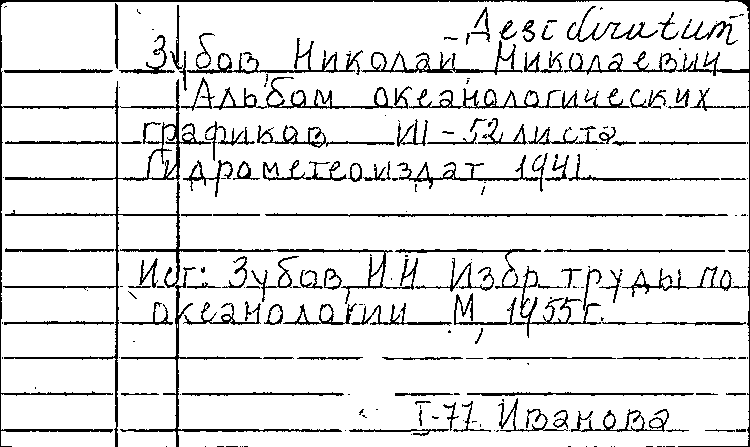 Дезidiratum
Зубов, Николай Николаевич
Альбом океанологических
графиков III - 52 листа
Гидрометеоиздат, 1941.
Ист: Зубов, Н.Н. Избр. труды по
океанологии М, 1955г.
I-77 Иванова